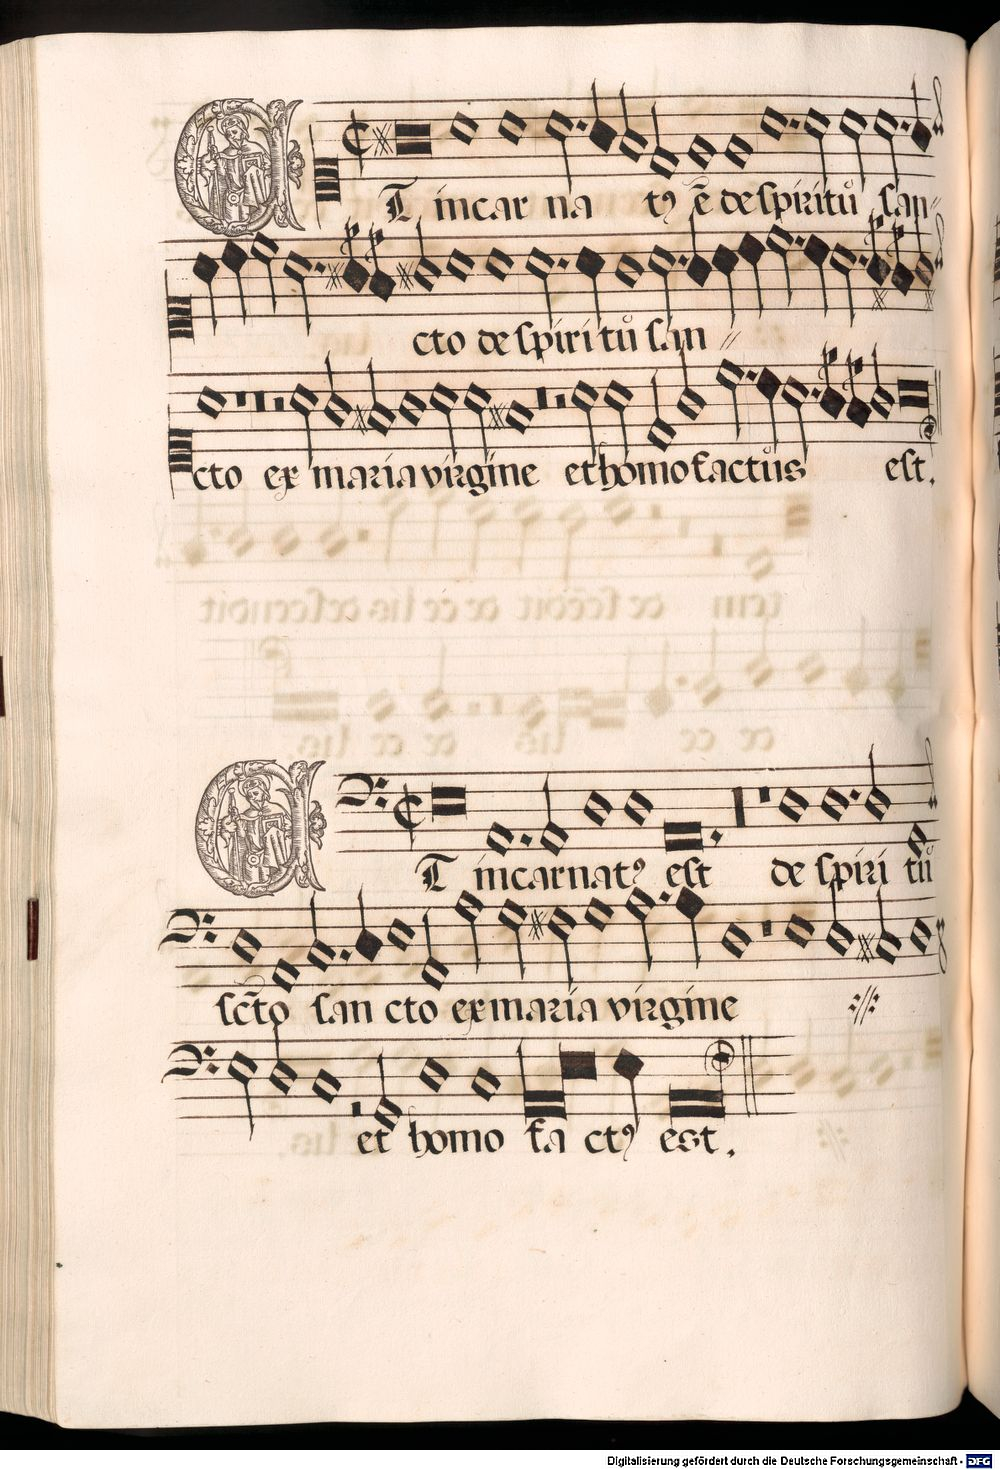 ET incar na tꝰ ē de spiritů san〃
cto de spiri tů san 〃
cto ex maria virgine et homo factůs est.
ET incarnatꝰ est de spiri tů
sc̄to san cto ex maria virgine
et homo fa ctꝰ est.
Digitalisierung gefördert durch die Deutsche Forschungsgemeinschaft - DFG